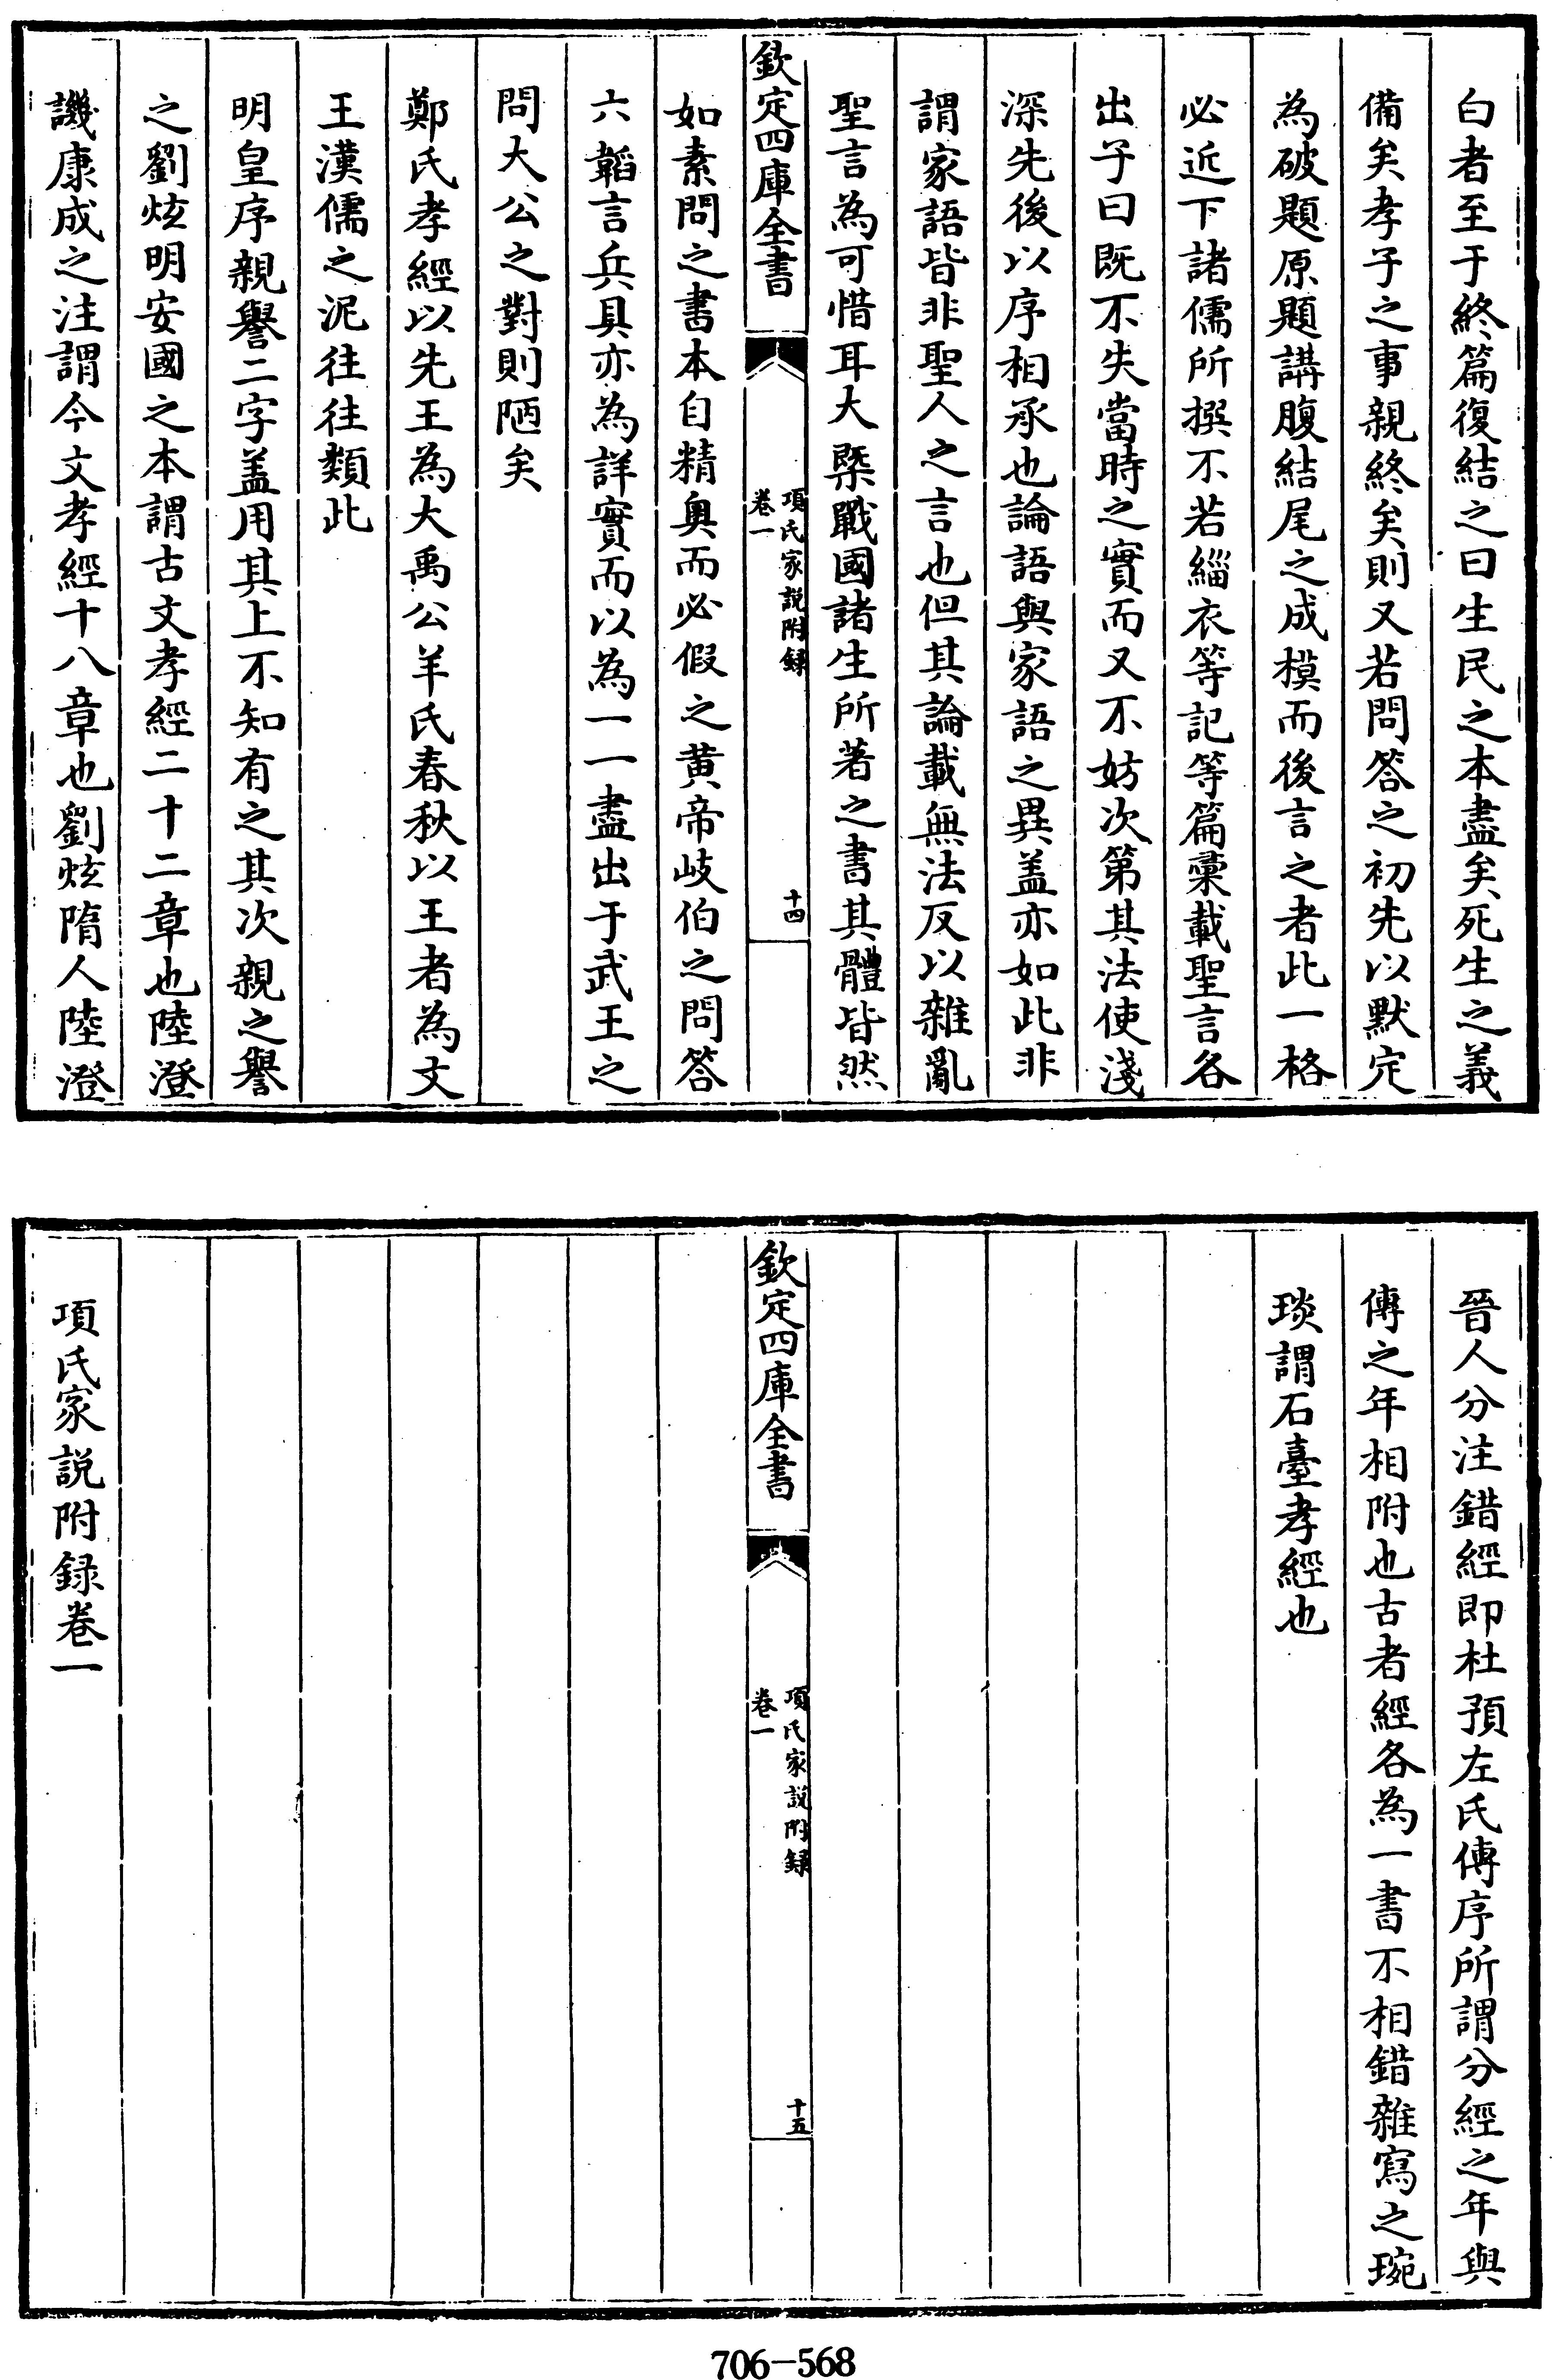 白者至于終篇復結之曰生民之本盡矣死生之義
備矣孝子之事親終矣則又若問答之初先以默定
為破題原題講腹結尾之成模而後言之者此一格
必近下諸儒所撰不若緇衣等記等篇彙載聖言各
出子曰既不失當時之實而又不妨次第其法使淺
深先後以序相承也論語與家語之異盖亦如此非
謂家語皆非聖人之言也但其論載無法反以雜亂
聖言為可惜耳大槩戰國諸生所著之書其體皆然
欽定四庫全書
項氏家説附録
卷一
十四
如素問之書本自精奥而必假之黄帝歧伯之問答
六韜言兵具亦為詳實而以為一一盡出于武王之
問大公之對則陋矣
鄭氏孝經以先王為大禹公羊氏春秋以王者為文
王漢儒之泥往往類此
明皇序親譽二字盖用其上不知有之其次親之譽
之劉炫明安國之本謂古文孝經二十二章也陸澄
譏康成之注謂今文孝經十八章也劉炫隋人陸澄
晉人分注錯經即杜預左氏傳序所謂分經之年與
傳之年相附也古者經各為一書不相錯雜寫之琬
琰謂石臺孝經也
欽定四庫全書
項氏家説附録
卷一
十五
項氏家説附録卷一
706-568